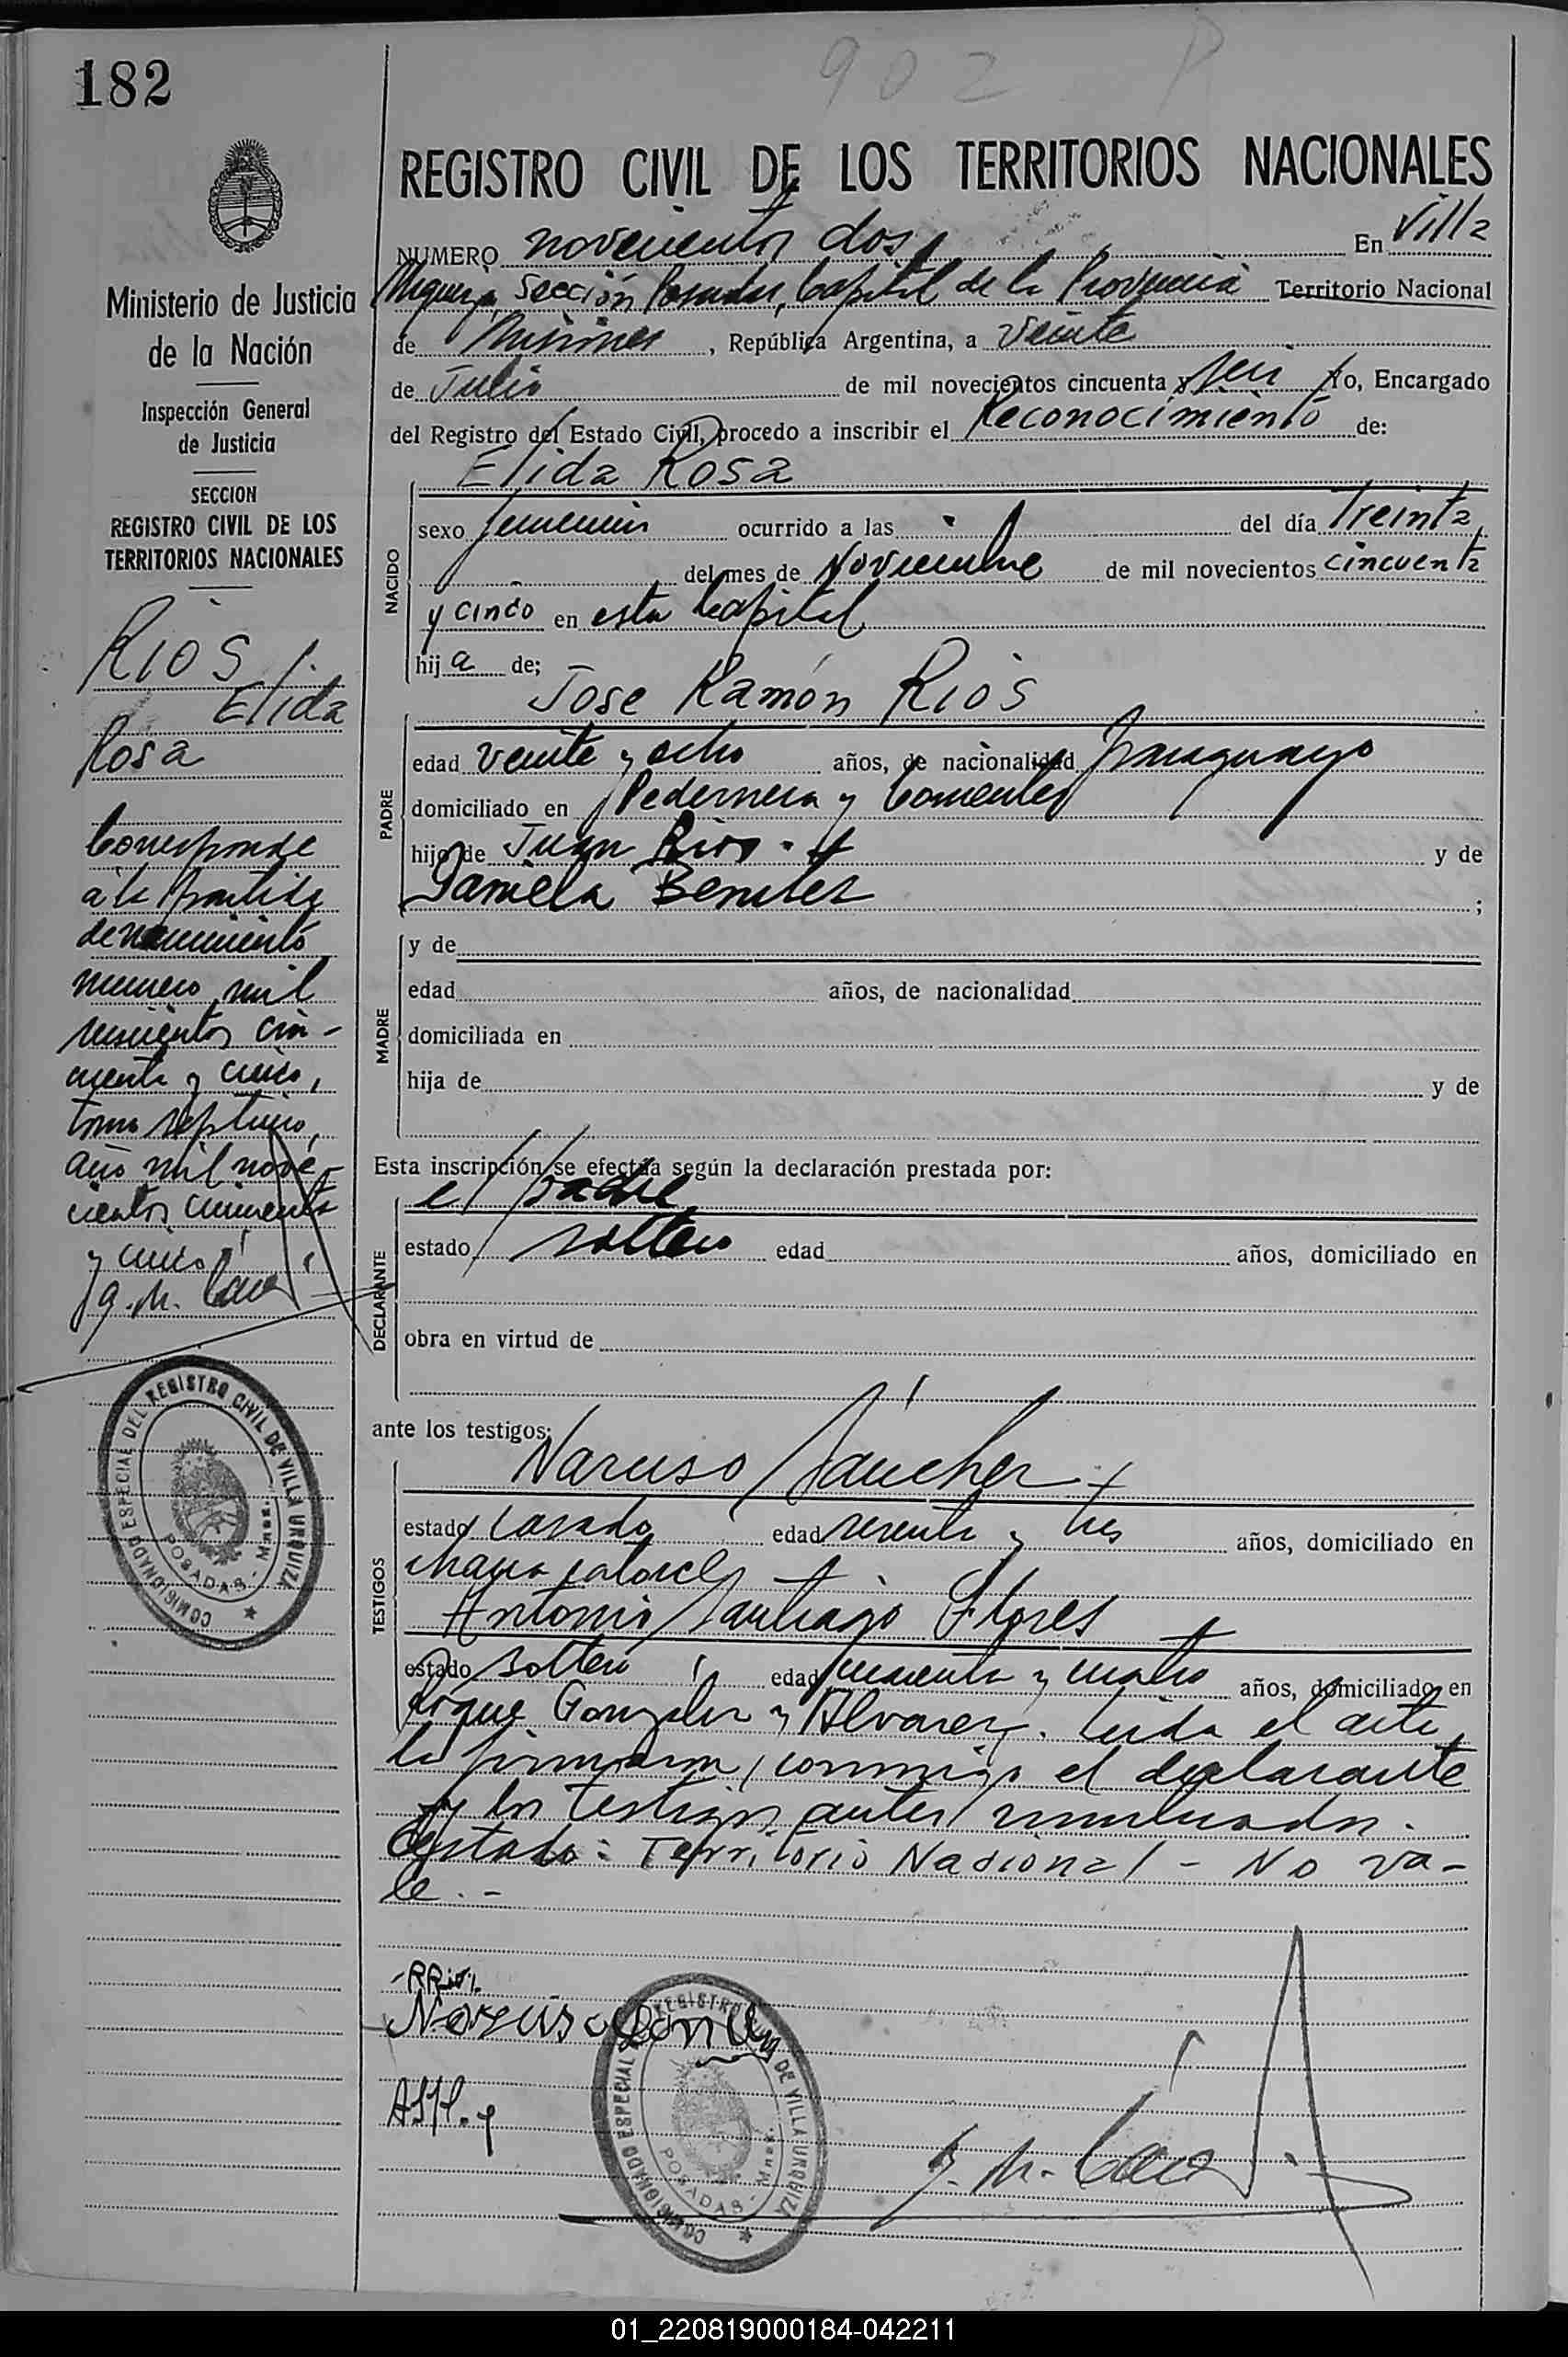 902 P
182
REGISTRO CIVIL DE LOS TERRITORIOS NACIONALES
NUMERO novecientos dos En Villa
Urquiza, Sección Posadas, Capital de la Provincia Territorio Nacional
de Misiones, República Argentina, a veinte
de Julio de mil novecientos cincuenta y seis Yo, Encargado
del Registro del Estado Civil, procedo a inscribir el Reconocimiento de:
Elida Rosa
NACIDO
sexo femenino ocurrido a las del día treinta
del mes de Noviembre de mil novecientos cincuenta
y cinco en esta Capital
hija de;
Jose Ramón Rios
PADRE
edad veinte y ocho años, de nacionalidad paraguayo
domiciliado en Pedernera y Corrientes
hijo de Juan Rios y de
Daniela Benitez ;
MADRE
y de
edad años, de nacionalidad
domiciliada en
hija de y de
Esta inscripción se efectúa según la declaración prestada por:
el padre
DECLARANTE
estado soltero edad años, domiciliado en
obra en virtud de
ante los testigos:
Narciso Sanchez
TESTIGOS
estado casado edad sesenta y tres años, domiciliado en
chacra catorce
Antonio Santiago Flores
estado soltero edad cuarenta y cuatro años, domiciliado en
Roque Gonzalez y Alvarez. Leida el acta
la firmaron conmigo el declarante
y los testigos antes nombrados.
Testado: Territorio Nacional - No va-
le.-
RRios
Narciso
J. M.
Ministerio de Justicia
de la Nación
Inspección General
de Justicia
SECCION
REGISTRO CIVIL DE LOS
TERRITORIOS NACIONALES
RIOS
Elida
Rosa
Corresponde
a la partida
de nacimiento
numero mil
seiscientos cin-
cuenta y cinco,
tomo septimo,
año mil nove-
cientos cincuenta
y cinco
J. M.
COMISIONADO ESPECIAL DEL REGISTRO CIVIL DE VILLA URQUIZA
POSADAS - Mnes.
COMISIONADO ESPECIAL REGISTRO DE VILLA URQUIZA
POSADAS - Mnes.
01_220819000184-042211